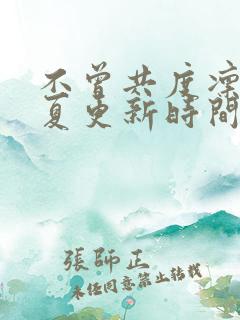 不曾共度凛
夏更新時間
張師正
未任同意禁止转载